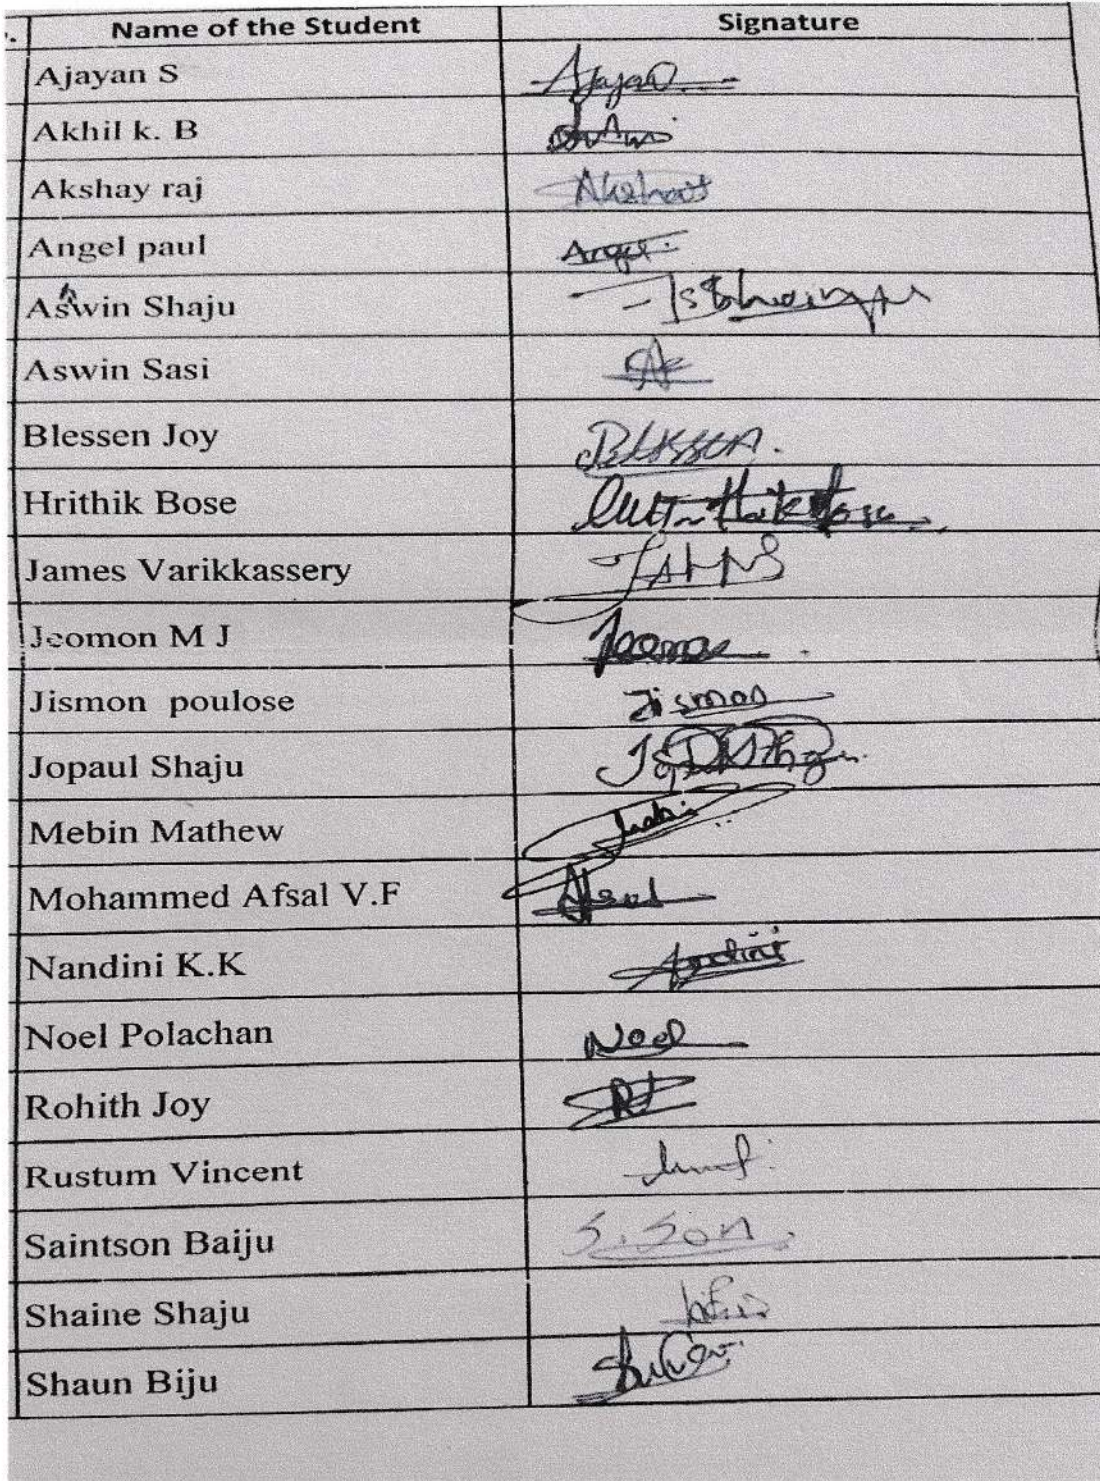 . Name of the Student Signature
Ajayan S Ajayan
Akhil k. B
Akshay raj Akshay
Angel paul Angel
Ashwin Shaju
Aswin Sasi
Blessen Joy Blessen.
Hrithik Bose
James Varikkassery JAMES
Jeomon M J Jeomon
Jismon poulose Jismon
Jopaul Shaju
Mebin Mathew
Mohammed Afsal V.F Afsal
Nandini K.K Nandini
Noel Polachan Noel
Rohith Joy RJ
Rustum Vincent
Saintson Baiju S.Son.
Shaine Shaju
Shaun Biju